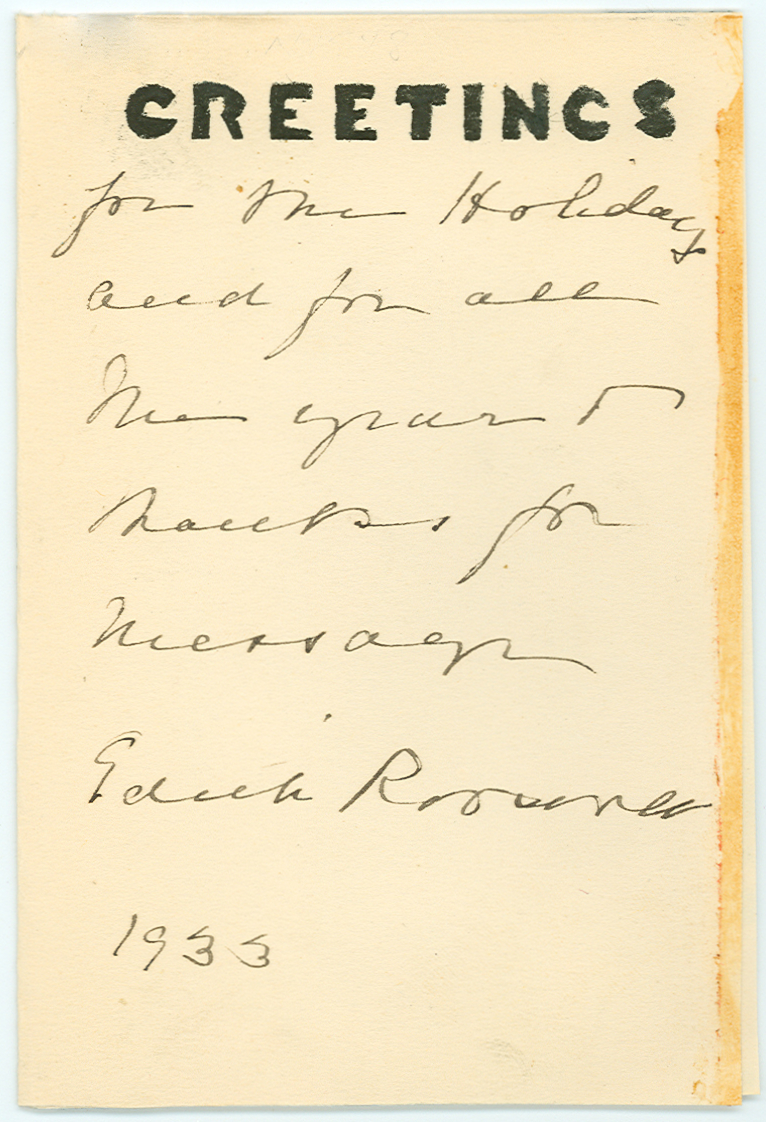 GREETINGS
for the Holidays
and for all
the year &
thanks for
message
Edith Roosevelt
1933